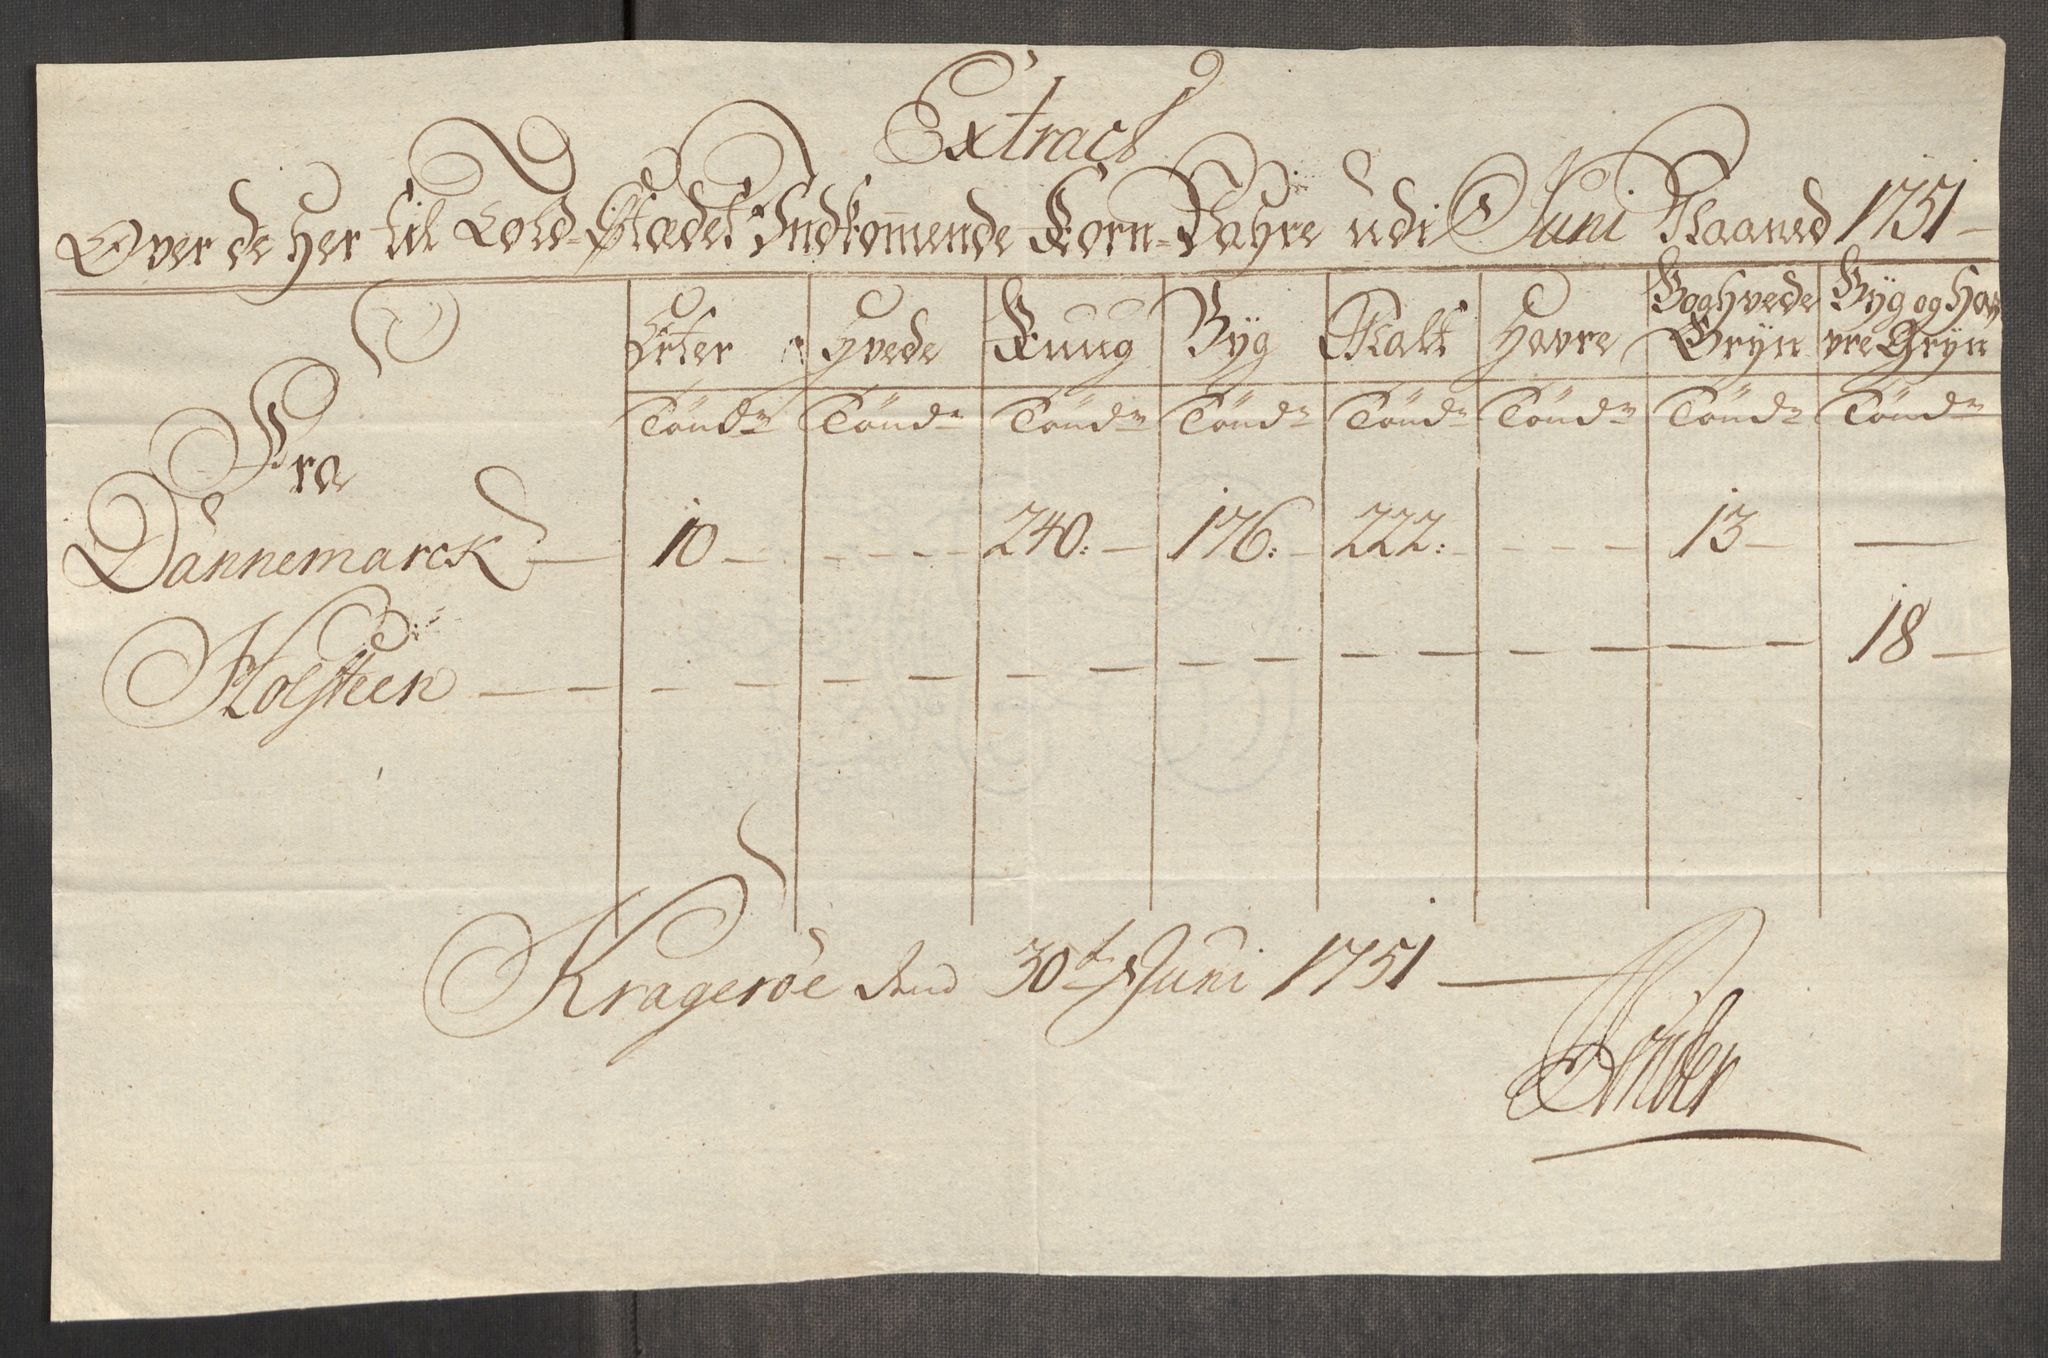 Extract
Over de her til Told-Stædet Indkommende Korn-Vahre udi Juni Maaned 1751
Erter Hvede Ruug Byg Malt Havre Boghvede Gryn Byg og Havre Gryn
Tönd̃ Tönd̃ Tönd̃ Tönd̃ Tönd̃ Tönd̃ Tönd̃ Tönd̃
Fra
Dannemarck 10 - - - - 240: - 176: - 222: - - - 13 - —
Holsteen - - - - - - - - - - - - 18 -
Krageröe den 30t Juni 1751